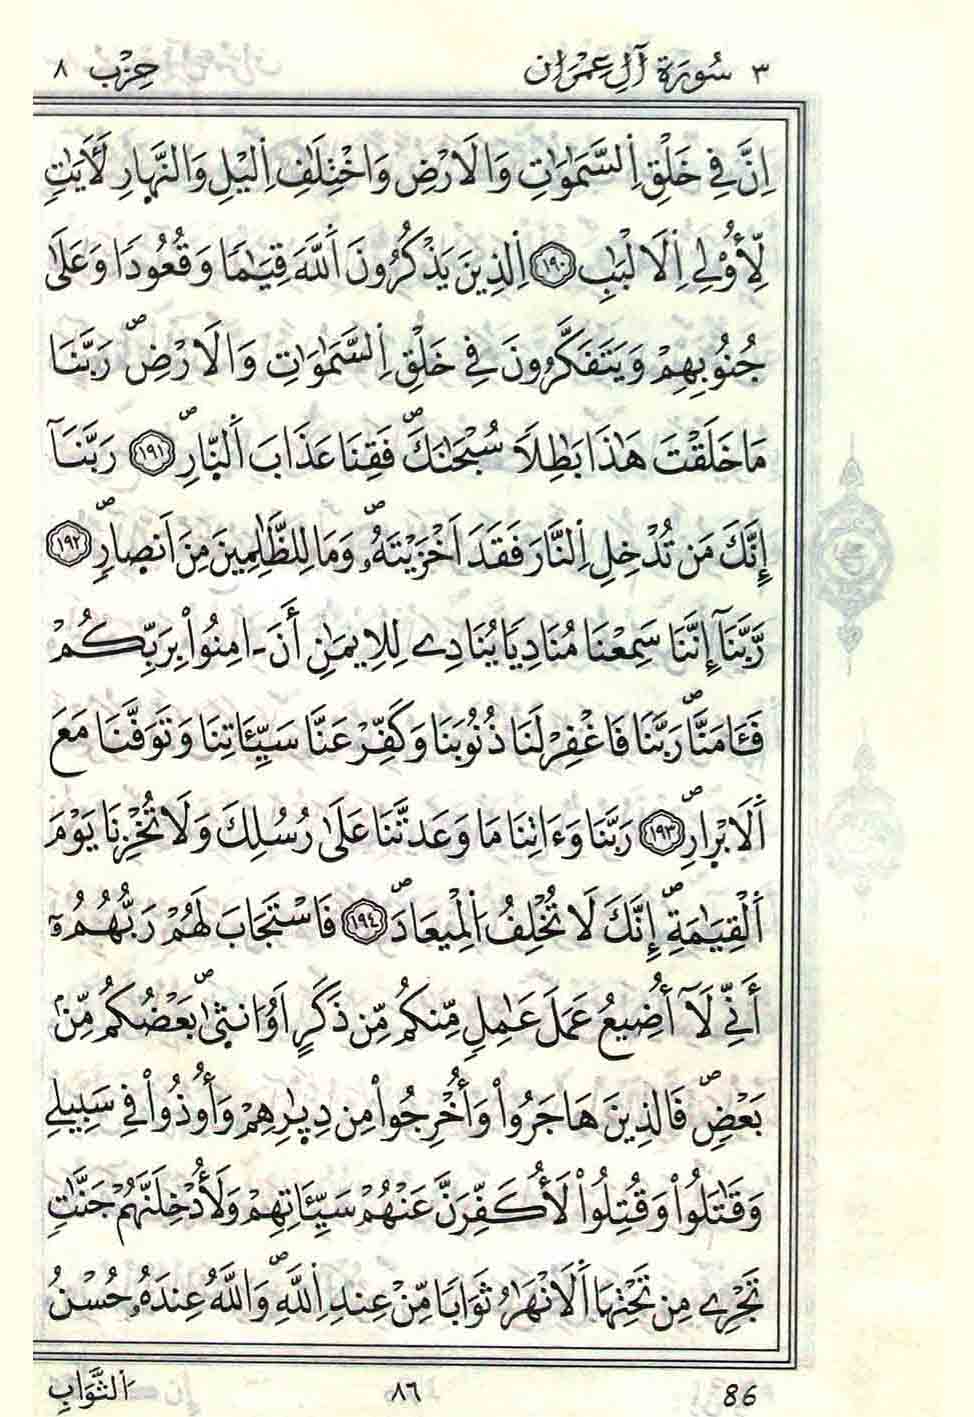 ٣ سُورَةُ آلِ عِمْرَان حِزْب ٨
اِنَّ فِے خَلْقِ اِ۬لسَّمَٰوَٰتِ وَالَارْضِ وَاخْتِلَٰفِ اِ۬ليْلِ وَالنَّه۪ارِ لَأٓيَٰتٖ
لِّأُوْلِے اِ۬لَالْبَٰبِ ١٩٠ اِ۬لذِينَ يَذْكُرُونَ اَ۬للَّهَ قِيَٰماٗ وَقُعُوداٗ وَعَلَىٰ
جُنُوبِهِمْ وَيَتَفَكَّرُونَ فِے خَلْقِ اِ۬لسَّمَٰوَٰتِ وَالَارْضِۖ رَبَّنَا
مَا خَلَقْتَ هَٰذَا بَٰطِلاٗ سُبْحَٰنَكَۖ فَقِنَا عَذَابَ اَ۬لنّ۪ارِۖ ١٩١ رَبَّنَآ
إِنَّكَ مَن تُدْخِلِ اِ۬لنَّارَ فَقَدَ اَخْزَيْتَهُۥۖ وَمَا لِلظَّٰلِمِينَ مِنَ اَنص۪ارٖۖ ١٩٢
رَّبَّنَآ إِنَّنَا سَمِعْنَا مُنَادِياٗ يُنَادِے لِلِايمَٰنِ أَنَ ـ امِنُواْ بِرَبِّكُمْ
فَـَٔامَنَّاۖ رَبَّنَا فَاغْفِرْ لَنَا ذُنُوبَنَا وَكَفِّرْ عَنَّا سَيِّـَٔاتِنَا وَتَوَفَّنَا مَعَ
اَ۬لَابْر۪ارِۖ ١٩٣ رَبَّنَا وَءَاتِنَا مَا وَعَدتَّنَا عَلَىٰ رُسُلِكَ وَلَا تُخْزِنَا يَوْمَ
اَ۬لْقِيَٰمَةِۖ إِنَّكَ لَا تُخْلِفُ اُ۬لْمِيعَادَۖ ١٩٤ فَاسْتَجَابَ لَهُمْ رَبُّهُمُۥٓ
أَنِّے لَآ أُضِيعُ عَمَلَ عَٰمِلٖ مِّنكُم مِّن ذَكَرٍ اَوُ انث۪يٰۖ بَعْضُكُم مِّنۢ
بَعْضٖۖ فَالذِينَ هَاجَرُواْ وَأُخْرِجُواْ مِن دِيٰ۪رِهِمْ وَأُوذُواْ فِے سَبِيلِے
وَقَٰتَلُواْ وَقُتِلُواْ لَأُكَفِّرَنَّ عَنْهُمْ سَيِّـَٔاتِهِمْ وَلَأُدْخِلَنَّهُمْ جَنَّٰتٖ
تَجْرِے مِن تَحْتِهَا اَ۬لَانْهَٰرُ ثَوَاباٗ مِّنْ عِندِ اِ۬للَّهِۖ وَاللَّهُ عِندَهُۥ حُسْنُ
اُ۬لثَّوَابِ ٨٦ 86